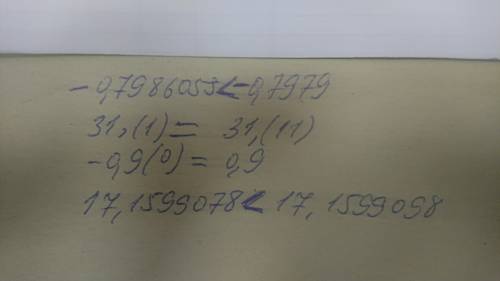 - 0,7986053 < -0,7979
31,(1) = 31,(11)
-0,9(0) = 0,9
17,1599078 < 17,1599098